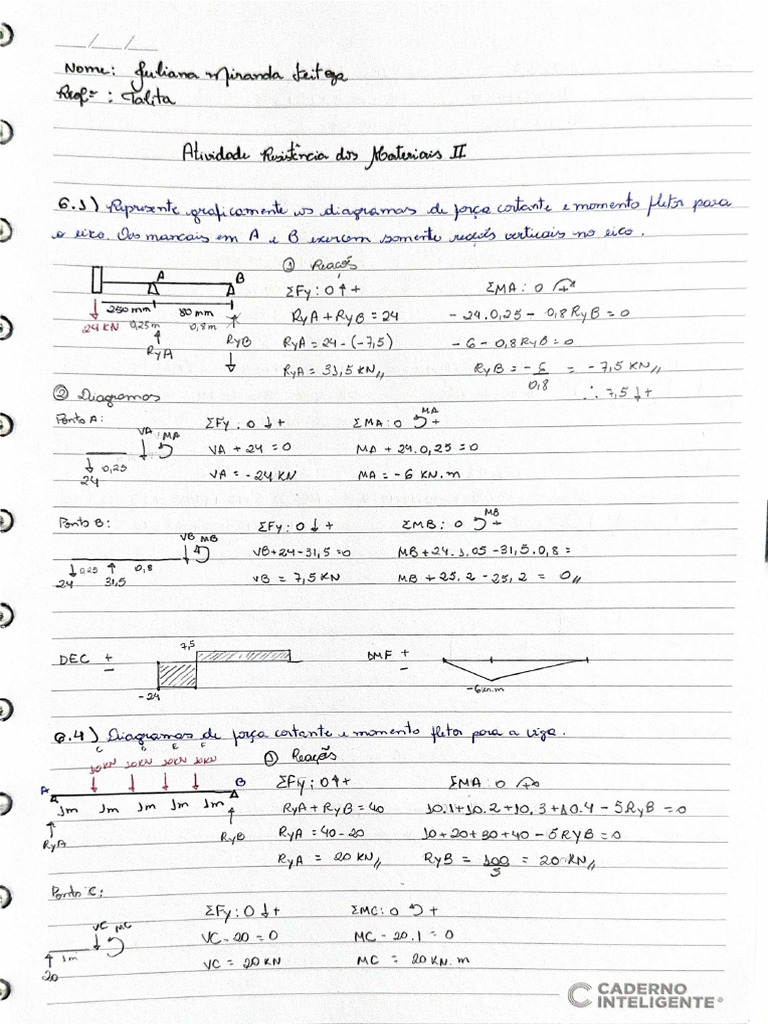 __/__/__
Nome: Juliana Miranda
Profª: Talita
Atividade Resistência dos Materiais II
6.1) Represente graficamente os diagramas de força cortante e momento fletor para
o eixo. Os mancais em A e B exercem somente reações verticais no eixo.
① Reaçõs
A B
250 mm 80 mm
24 KN 0,25m 0,8m
RyA RyB
ΣFy: 0 ↑ + ΣMA: 0 +
RyA + RyB = 24 - 24.0,25 - 0,8RyB = 0
RyA = 24 - (-7,5) - 6 - 0,8RyB = 0
RyA = 31,5 KN,, RyB = - 6/0,8 = - 7,5 KN,,
∴ 7,5 ↓ +
② Diagramas
Ponto A: ΣFy: 0 ↓ + ΣMA: 0 MA +
VA MA VA + 24 = 0 MA + 24.0,25 = 0
24 0,25 VA = -24 KN MA = -6 KN.m
Ponto B: ΣFy: 0 ↓ + ΣMB: 0 MB +
VB MB VB + 24 - 31,5 = 0 MB + 24.1,05 - 31,5.0,8 =
24 0,25 31,5 0,8 VB = 7,5 KN MB + 25,2 - 25,2 = 0,,
DEC + - 7,5 -24
DMF + - -6kn.m
6.4) Diagramas de força cortante e momento fletor para a viga.
C D E F
10KN 10KN 10KN 10KN
A B
1m 1m 1m 1m 1m
RyA RyB
① Reações
ΣFy: 0 ↑ + ΣMA: 0
RyA + RyB = 40 10.1+10.2+10.3+10.4 - 5RyB = 0
RyA = 40 - 20 10+20+30+40 - 5RyB = 0
RyA = 20 KN,, RyB = 100/5 = 20 KN,,
Ponto C:
ΣFy: 0 ↓ + ΣMC: 0 +
VC MC VC - 20 = 0 MC - 20.1 = 0
20 1m VC = 20 KN MC = 20 KN.m
CADERNO
INTELIGENTE®